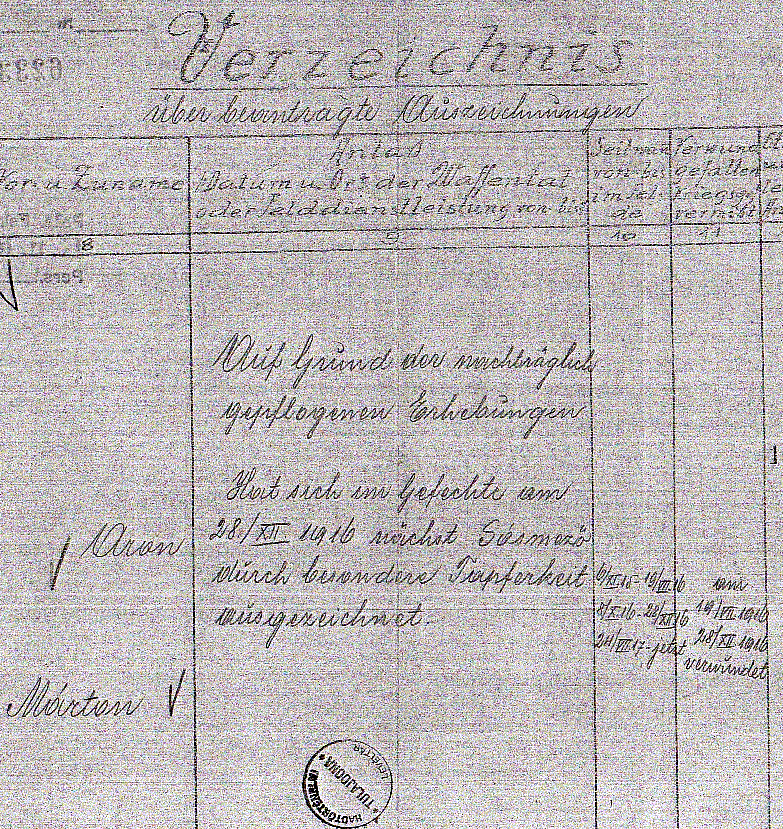 Verzeichnis
über beantragte Auszeichnungen
Vor. u Zuname
Anlaß
Datum u. Ort der Waffentat
oder Felddienstleistung von-bis
von-bis
im Fel
de
gefallen
vermißt
8
9
10
11
Auf Grund der nachträglich
gepflogenen Erhebungen
Hat sich im Gefechte am
28/XII 1916 nächst Sósmező
durch besondere Tapferkeit
ausgezeichnet.
Aron
Márton
8/X 16 - 28/XII 16
24/VII 17 - jetzt
am
19/VII 1916
28/XII 1916
verwundet
HADTÖRTÉNELMI
LEVÉLTÁR
* TULAJDONA *